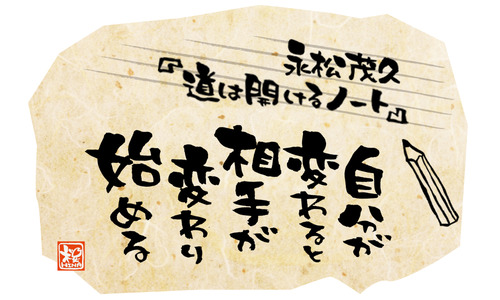 永松茂久
『道は開けるノート』
自分が
変わると
相手が
変わり
始める